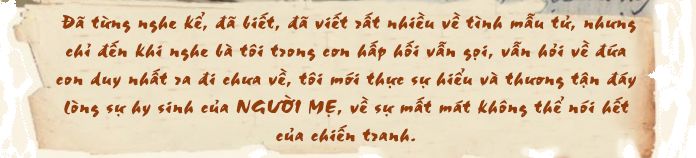 Đã từng nghe kể, đã biết, đã viết rất nhiều về tình mẫu tử, nhưng
chỉ đến khi nghe bà tôi trong cơn hấp hối vẫn gọi, vẫn hỏi về đứa
con duy nhất ra đi chưa về, tôi mới thực sự hiểu và thương tận đáy
lòng sự hy sinh của NGƯỜI MẸ, về sự mất mát không thể nói hết
của chiến tranh.